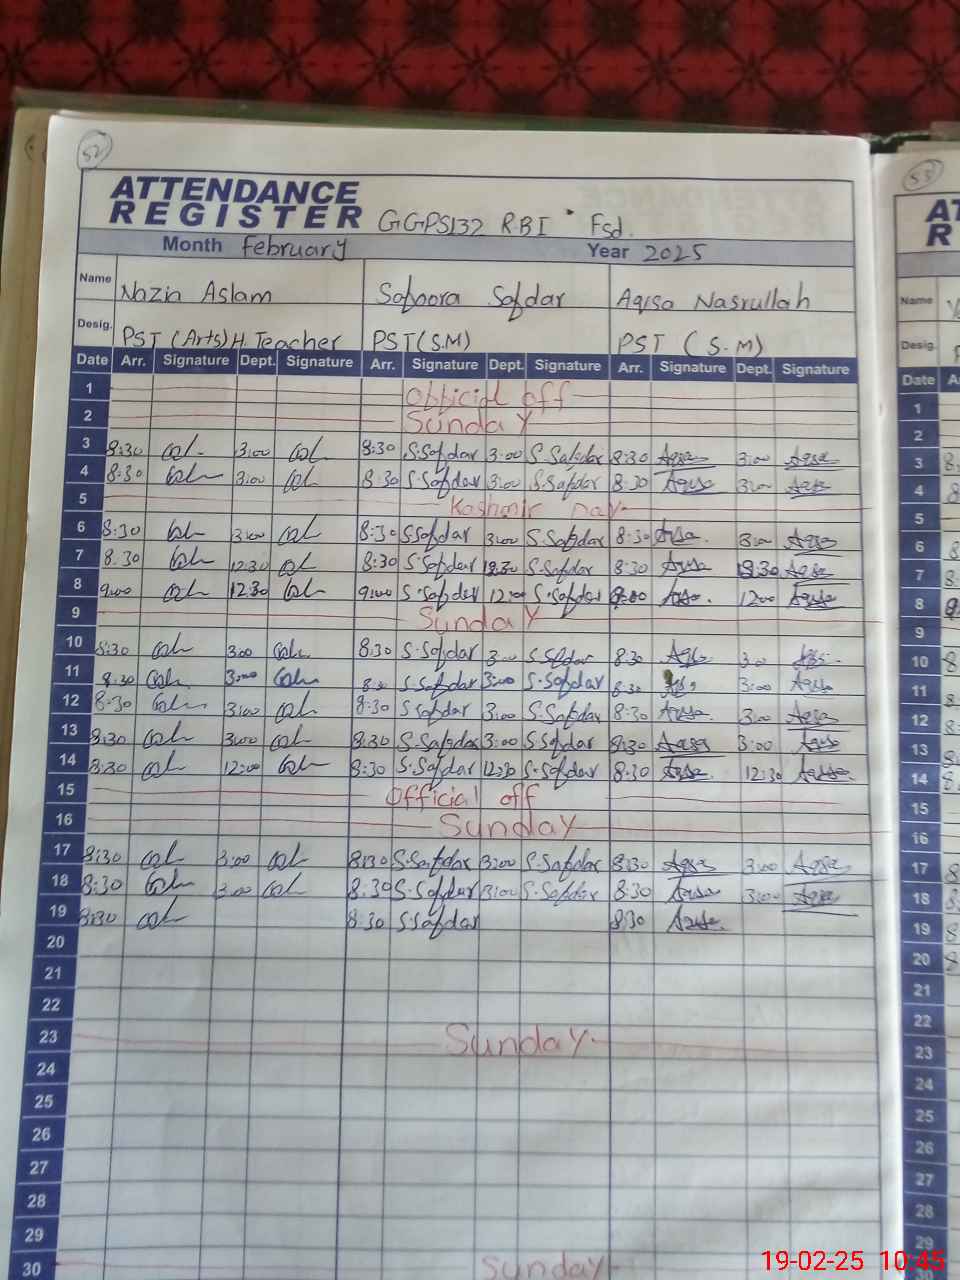 52
ATTENDANCE
REGISTER GGPS132 R.B I Fsd.
Month february Year 2025
Name Nazia Aslam Safoora Safdar Aqsa Nasrullah
Desig. PST (Arts) H. Teacher PST (S.M) PST (S.M)
Date Arr. Signature Dept. Signature Arr. Signature Dept. Signature Arr. Signature Dept. Signature
1 Official off
2 Sunday
3 8:30 3:00 8:30 S.Safdar 3:00 S.Safdar 8:30 Aqsa 3:00 Aqsa
4 8:30 3:00 8:30 S.Safdar 3:00 S.Safdar 8:30 Aqsa 3:00 Aqsa
5 Kashmir Day
6 8:30 3:00 8:30 S.Safdar 3:00 S.Safdar 8:30 Aqsa 3:00 Aqsa
7 8:30 12:30 8:30 S.Safdar 12:30 S.Safdar 8:30 Aqsa 12:30 Aqsa
8 9:00 12:30 9:00 S.Safdar S.Safdar Aqsa 12:00 Aqsa
9 Sunday
10 8:30 3:00 8:30 S.Safdar 3:00 S.Safdar 8:30 Aqsa 3:00 Aqsa
11 8:30 3:00 8:30 S.Safdar 3:00 S.Safdar 8:30 3:00 Aqsa
12 8:30 3:00 8:30 S.Safdar 3:00 S.Safdar 8:30 Aqsa 3:00 Aqsa
13 8:30 3:00 8:30 S.Safdar 3:00 S.Safdar 8:30 Aqsa 3:00 Aqsa
14 8:30 12:00 8:30 S.Safdar 12:30 S.Safdar 8:30 Aqsa 12:30 Aqsa
15 Official off
16 Sunday
17 8:30 3:00 8:30 S.Safdar 3:00 S.Safdar 8:30 Aqsa 3:00 Aqsa
18 8:30 3:00 8:30 S.Safdar 3:00 S.Safdar 8:30 Aqsa 3:00 Aqsa
19 8:30 8:30 S.Safdar 8:30 Aqsa
20
21
22
23 Sunday
24
25
26
27
28
29
30 Sunday
53
Name
Desig.
Date
1
2
3
4
5
6
7
8
9
10
11
12
13
14
15
16
17
18
19
20
21
22
23
24
25
26
27
28
29
19-02-25 10:45